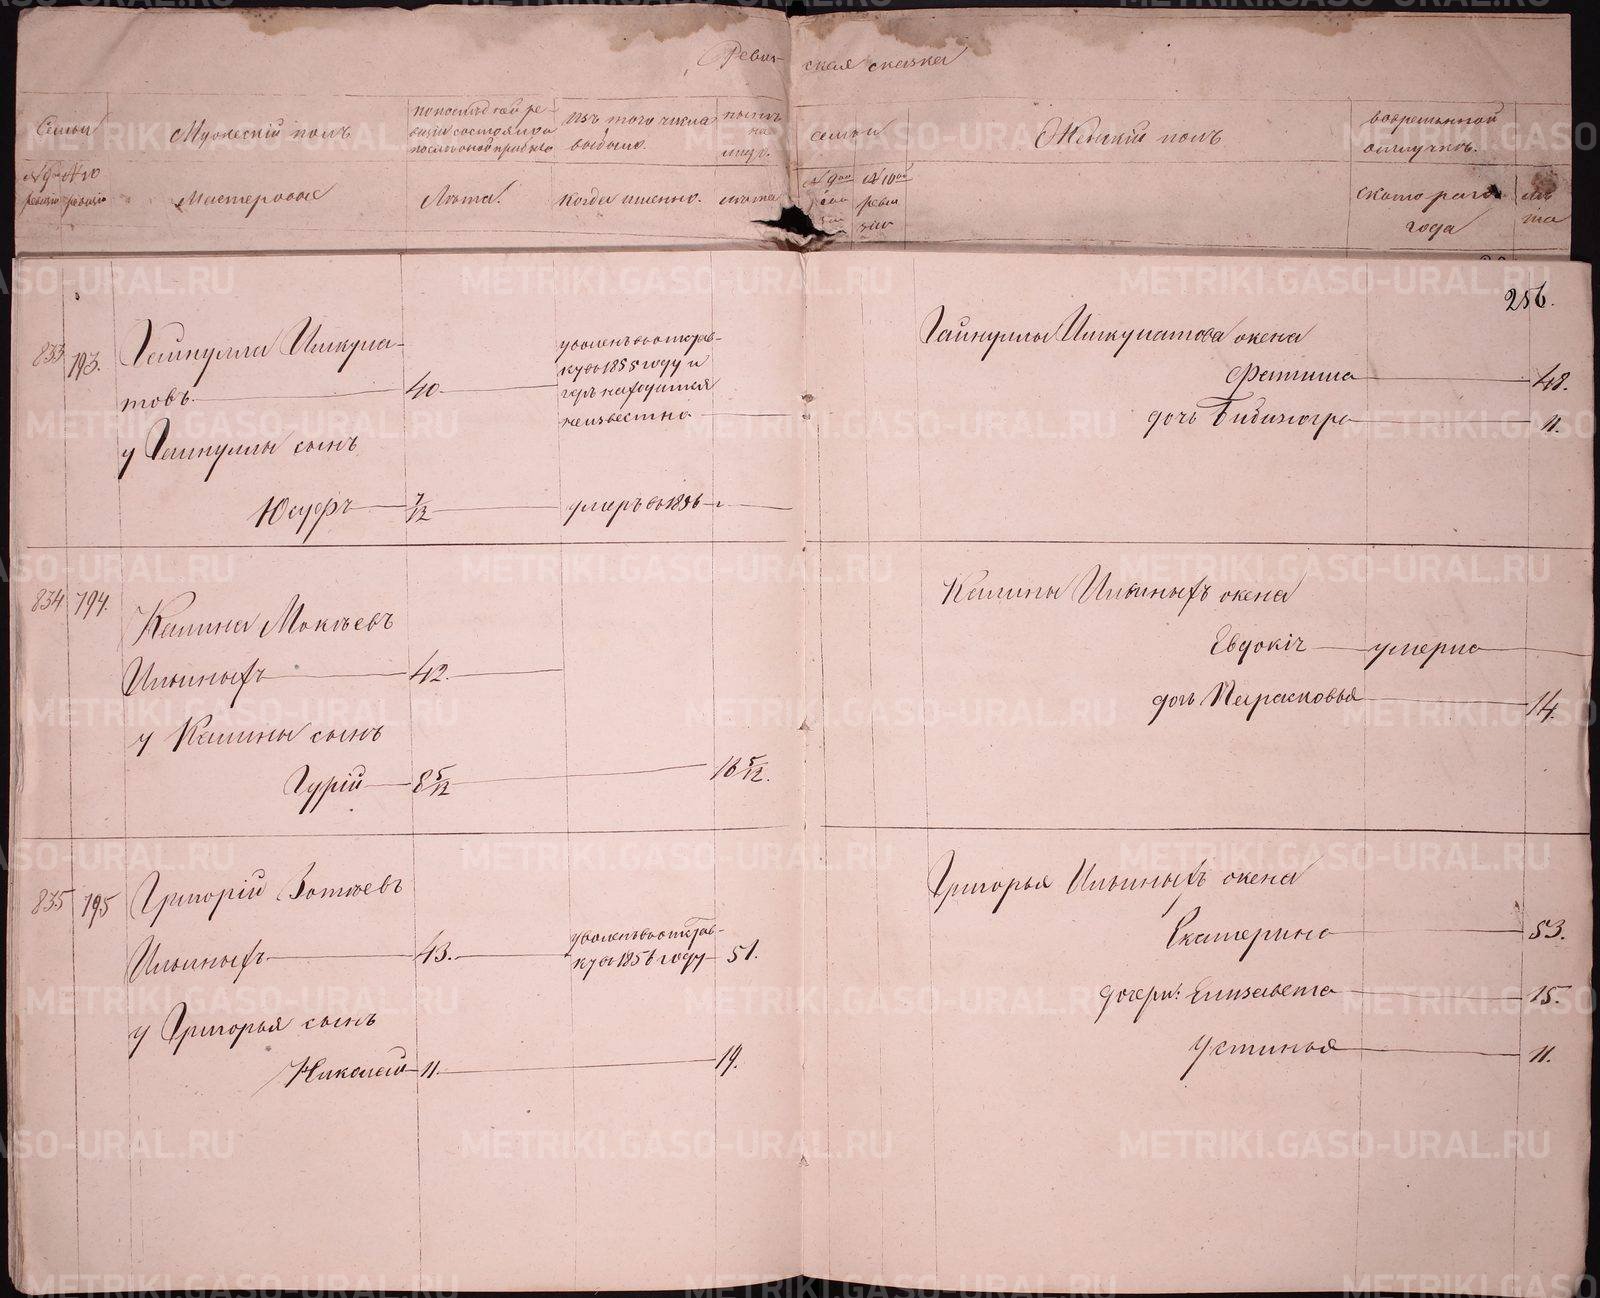 Ревиз-
ская сказка
Семьи
Мужескiй полъ
По последней ре-
визiи состояло и
после оной прибыло
Изъ того числа
выбыло.
ныне
на
лицо.
семьи
Женскiй полъ
во временной
отлучке.
№ 9ой
ревизiи
№ 10
ревизiи
Мастеровые
Лета.
Когда именно.
лета
№ 9ой
№ 10ой
реви
зiи
съ котораго
года
ле
та
256.
833
793.
Гайнулла Ишкуна-
товъ.
40
уволенъ в отстав-
ку въ 1855 году и
где находится
неизвестно
у Гайнуллы сынъ
Юсуфъ
7/12
умеръ въ 1856
Гайнуллы Ишкунатова жена
Фатиша
48.
дочь Бибизюгра
11.
834
794.
Калина Мокеевъ
Ильиныхъ
42.
у Калины сынъ
Гурiй
8 5/12
16 5/12.
Калины Ильиныхъ жена
Евдокiя
умерла
дочь Парасковья
14.
835
795
Григорiй Зотеевъ
Ильиныхъ
43.
уволенъ в отстав-
ку въ 1856 году
51.
у Григорья сынъ
Николай
11.
19.
Григорья Ильиныхъ жена
Екатерина
53.
дочери: Елизавета
15.
Устинья
11.
METRIKI.GASO-URAL.RU